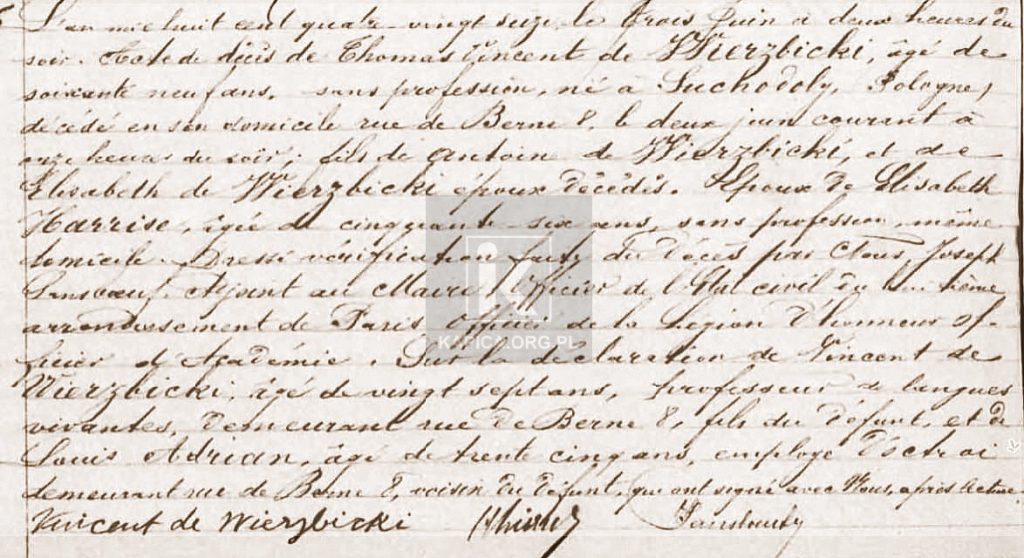 L'an mil huit cent quatre vingt seize le trois Juin à deux heures du
soir. Acte de décès de Thomas Vincent de Wierzbicki, âgé de
soixante neuf ans, sans profession, né à Suchodoly, Pologne,
décédé en son domicile rue de Berne 8, le deux juin courant à
onze heures du soir; fils de Antoine de Wierzbicki, et de
Elisabeth de Wierzbicki époux décédés. Epoux de Elisabeth
Harrise, âgée de cinquante six ans, sans profession même
domicile. Dressé vérification faite du décès par Nous, Joseph
Adjoint au Maire, officier de l'Etat civil du huitième
arrondissement de Paris, officier de la Légion d'honneur of-
ficier d'Académie. Sur la déclaration de Vincent de
Wierzbicki, âgé de vingt sept ans, professeur de langues
vivantes, demeurant rue de Berne 8, fils du défunt, et de
Louis Adrian, âgé de trente cinq ans, employé d'octroi
demeurant rue de Berne 8, voisin du défunt, qui ont signé avec Nous, après lecture.
Vincent de Wierzbicki
KAPICA.ORG.PL